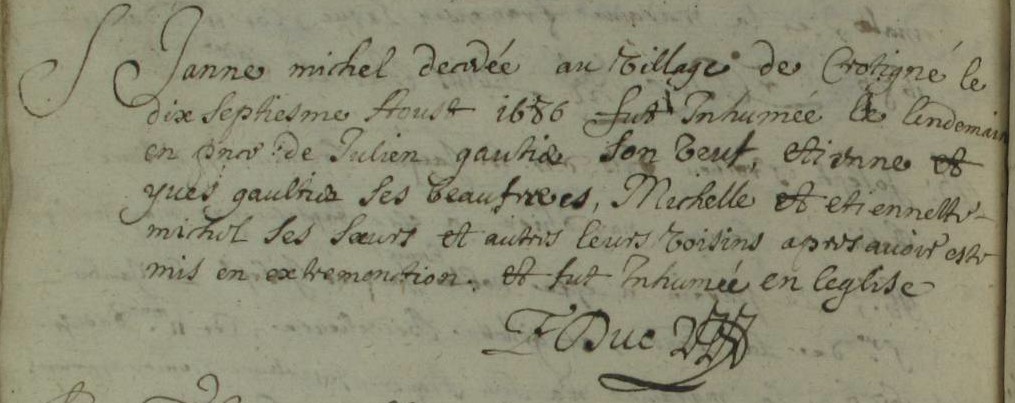 S Janne michel decedée au village de Crotigné le
dix septiesme Aoust 1686 fut Inhumée le lendemain
en pnce de Julien gautier son veuf, etienne et
yues gaultier ses beaufreres, Michelle et etiennette
michel ses sœurs et autres leurs voisins apres auoir este
mis en extremonction. et fut Inhumée en leglise
F Duc